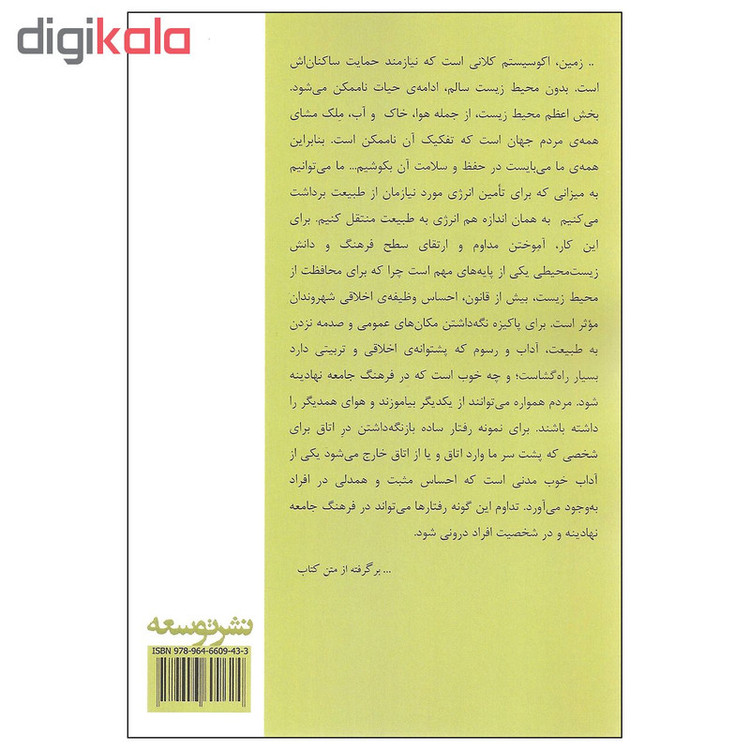 digikala
.. زمین، اکوسیستم کلانی است که نیازمند حمایت ساکنان‌اش
است. بدون محیط زیست سالم، ادامه‌ی حیات ناممکن می‌شود.
بخش اعظم محیط زیست، از جمله هوا، خاک و آب، مِلک مشای
همه‌ی مردم جهان است که تفکیک آن ناممکن است. بنابراین
همه‌ی ما می‌بایست در حفظ و سلامت آن بکوشیم... ما می‌توانیم
به میزانی که برای تأمین انرژی مورد نیازمان از طبیعت برداشت
می‌کنیم به همان اندازه هم انرژی به طبیعت منتقل کنیم. برای
این کار، آموختن مداوم و ارتقای سطح فرهنگ و دانش
زیست‌محیطی یکی از پایه‌های مهم است چرا که برای محافظت از
محیط زیست، بیش از قانون، احساس وظیفه‌ی اخلاقی شهروندان
مؤثر است. برای پاکیزه نگه‌داشتن مکان‌های عمومی و صدمه نزدن
به طبیعت، آداب و رسوم که پشتوانه‌ی اخلاقی و تربیتی دارد
بسیار راه‌گشاست؛ و چه خوب است که در فرهنگ جامعه نهادینه
شود. مردم همواره می‌توانند از یکدیگر بیاموزند و هوای همدیگر را
داشته باشند. برای نمونه رفتار ساده بازنگه‌داشتن درِ اتاق برای
شخصی که پشت سر ما وارد اتاق و یا از اتاق خارج می‌شود یکی از
آداب خوب مدنی است که احساس مثبت و همدلی در افراد
به‌وجود می‌آورد. تداوم این گونه رفتارها می‌تواند در فرهنگ جامعه
نهادینه و در شخصیت افراد درونی شود.
... برگرفته از متن کتاب
نشر توسعه
ISBN 978-964-6609-43-3